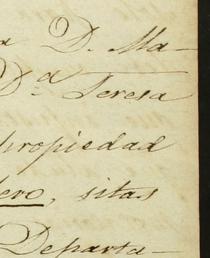 a D. Ma-
D.ª Teresa
propiedad
ero, sitas
Departa-